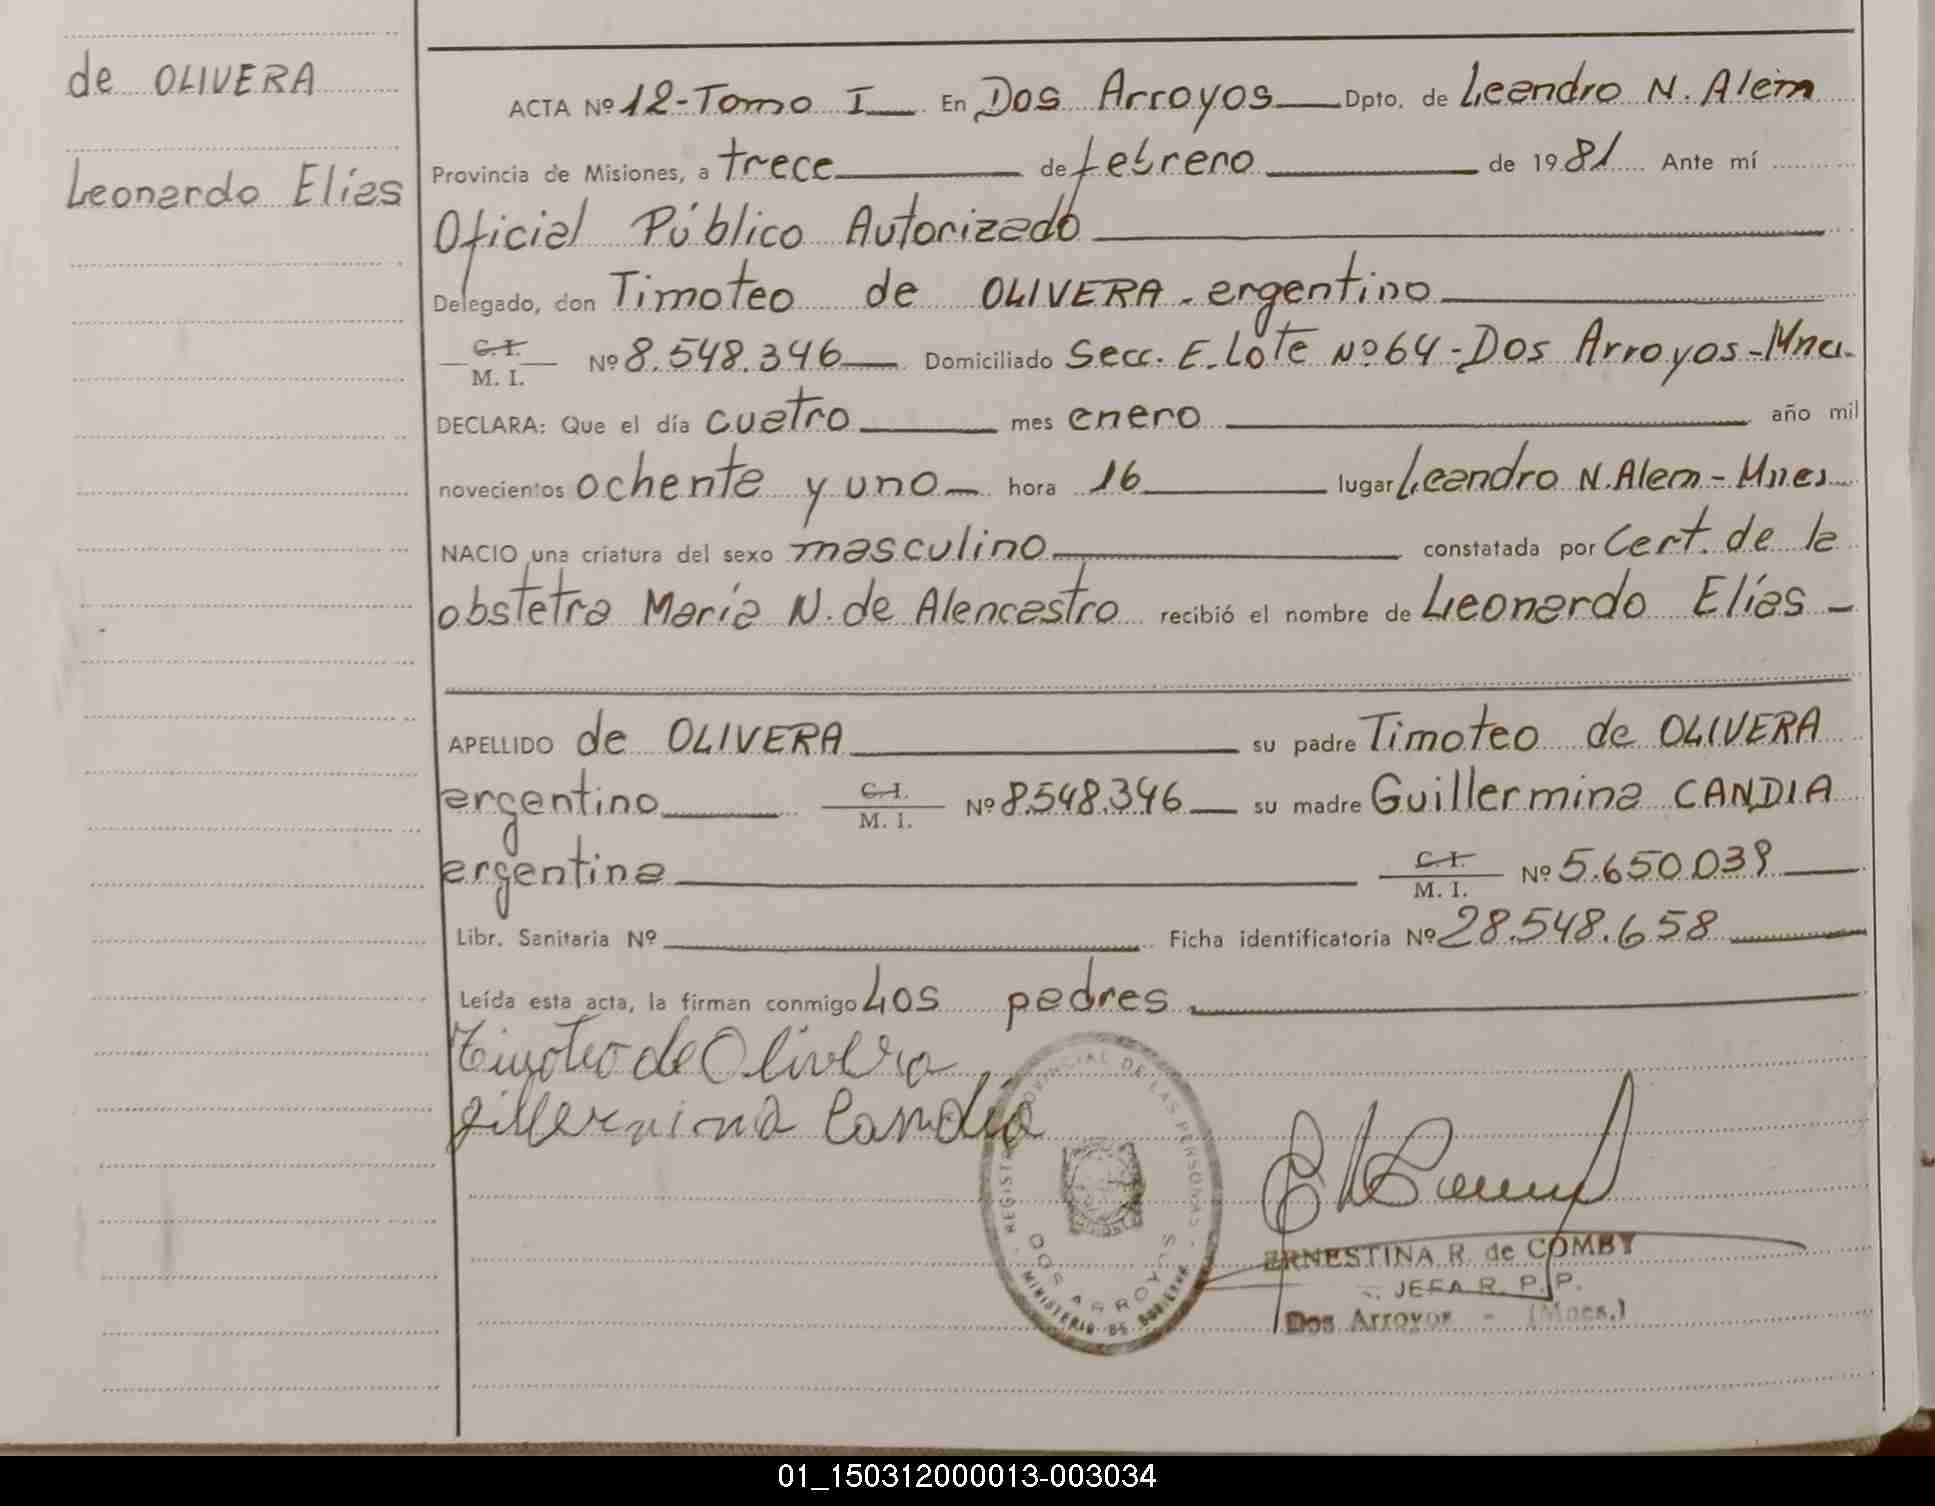 de OLIVERA
Leonardo Elías
ACTA Nº 12-Tomo I En Dos Arroyos Dpto. de Leandro N. Alem
Provincia de Misiones, a trece de febrero de 1981 Ante mí
Oficial Público Autorizado
Delegado, don Timoteo de OLIVERA - argentino
C. I.
M. I. Nº 8.548.346 Domiciliado Secc. E. Lote Nº 64 - Dos Arroyos - Mnes.
DECLARA: Que el día cuatro mes enero año mil
novecientos ochenta y uno hora 16 lugar Leandro N. Alem - Mnes
NACIO una criatura del sexo masculino constatada por Cert. de la
obstetra María N. de Alencastro recibió el nombre de Leonardo Elías
APELLIDO de OLIVERA su padre Timoteo de OLIVERA
argentino C. I. M. I. Nº 8.548.346 su madre Guillermina CANDIA
argentina C. I. M. I. Nº 5.650.039
Libr. Sanitaria Nº Ficha identificatoria Nº 28.548.658
Leída esta acta, la firman conmigo Los padres
Timoteo de Olivera
gillermina Candia
REGISTRO PROVINCIAL DE LAS PERSONAS
DOS ARROYOS
MINISTERIO DE GOBIERNO
ERNESTINA R. de COMBY
JEFA R. P. P.
Dos Arroyos - (Mnes.)
01_150312000013-003034